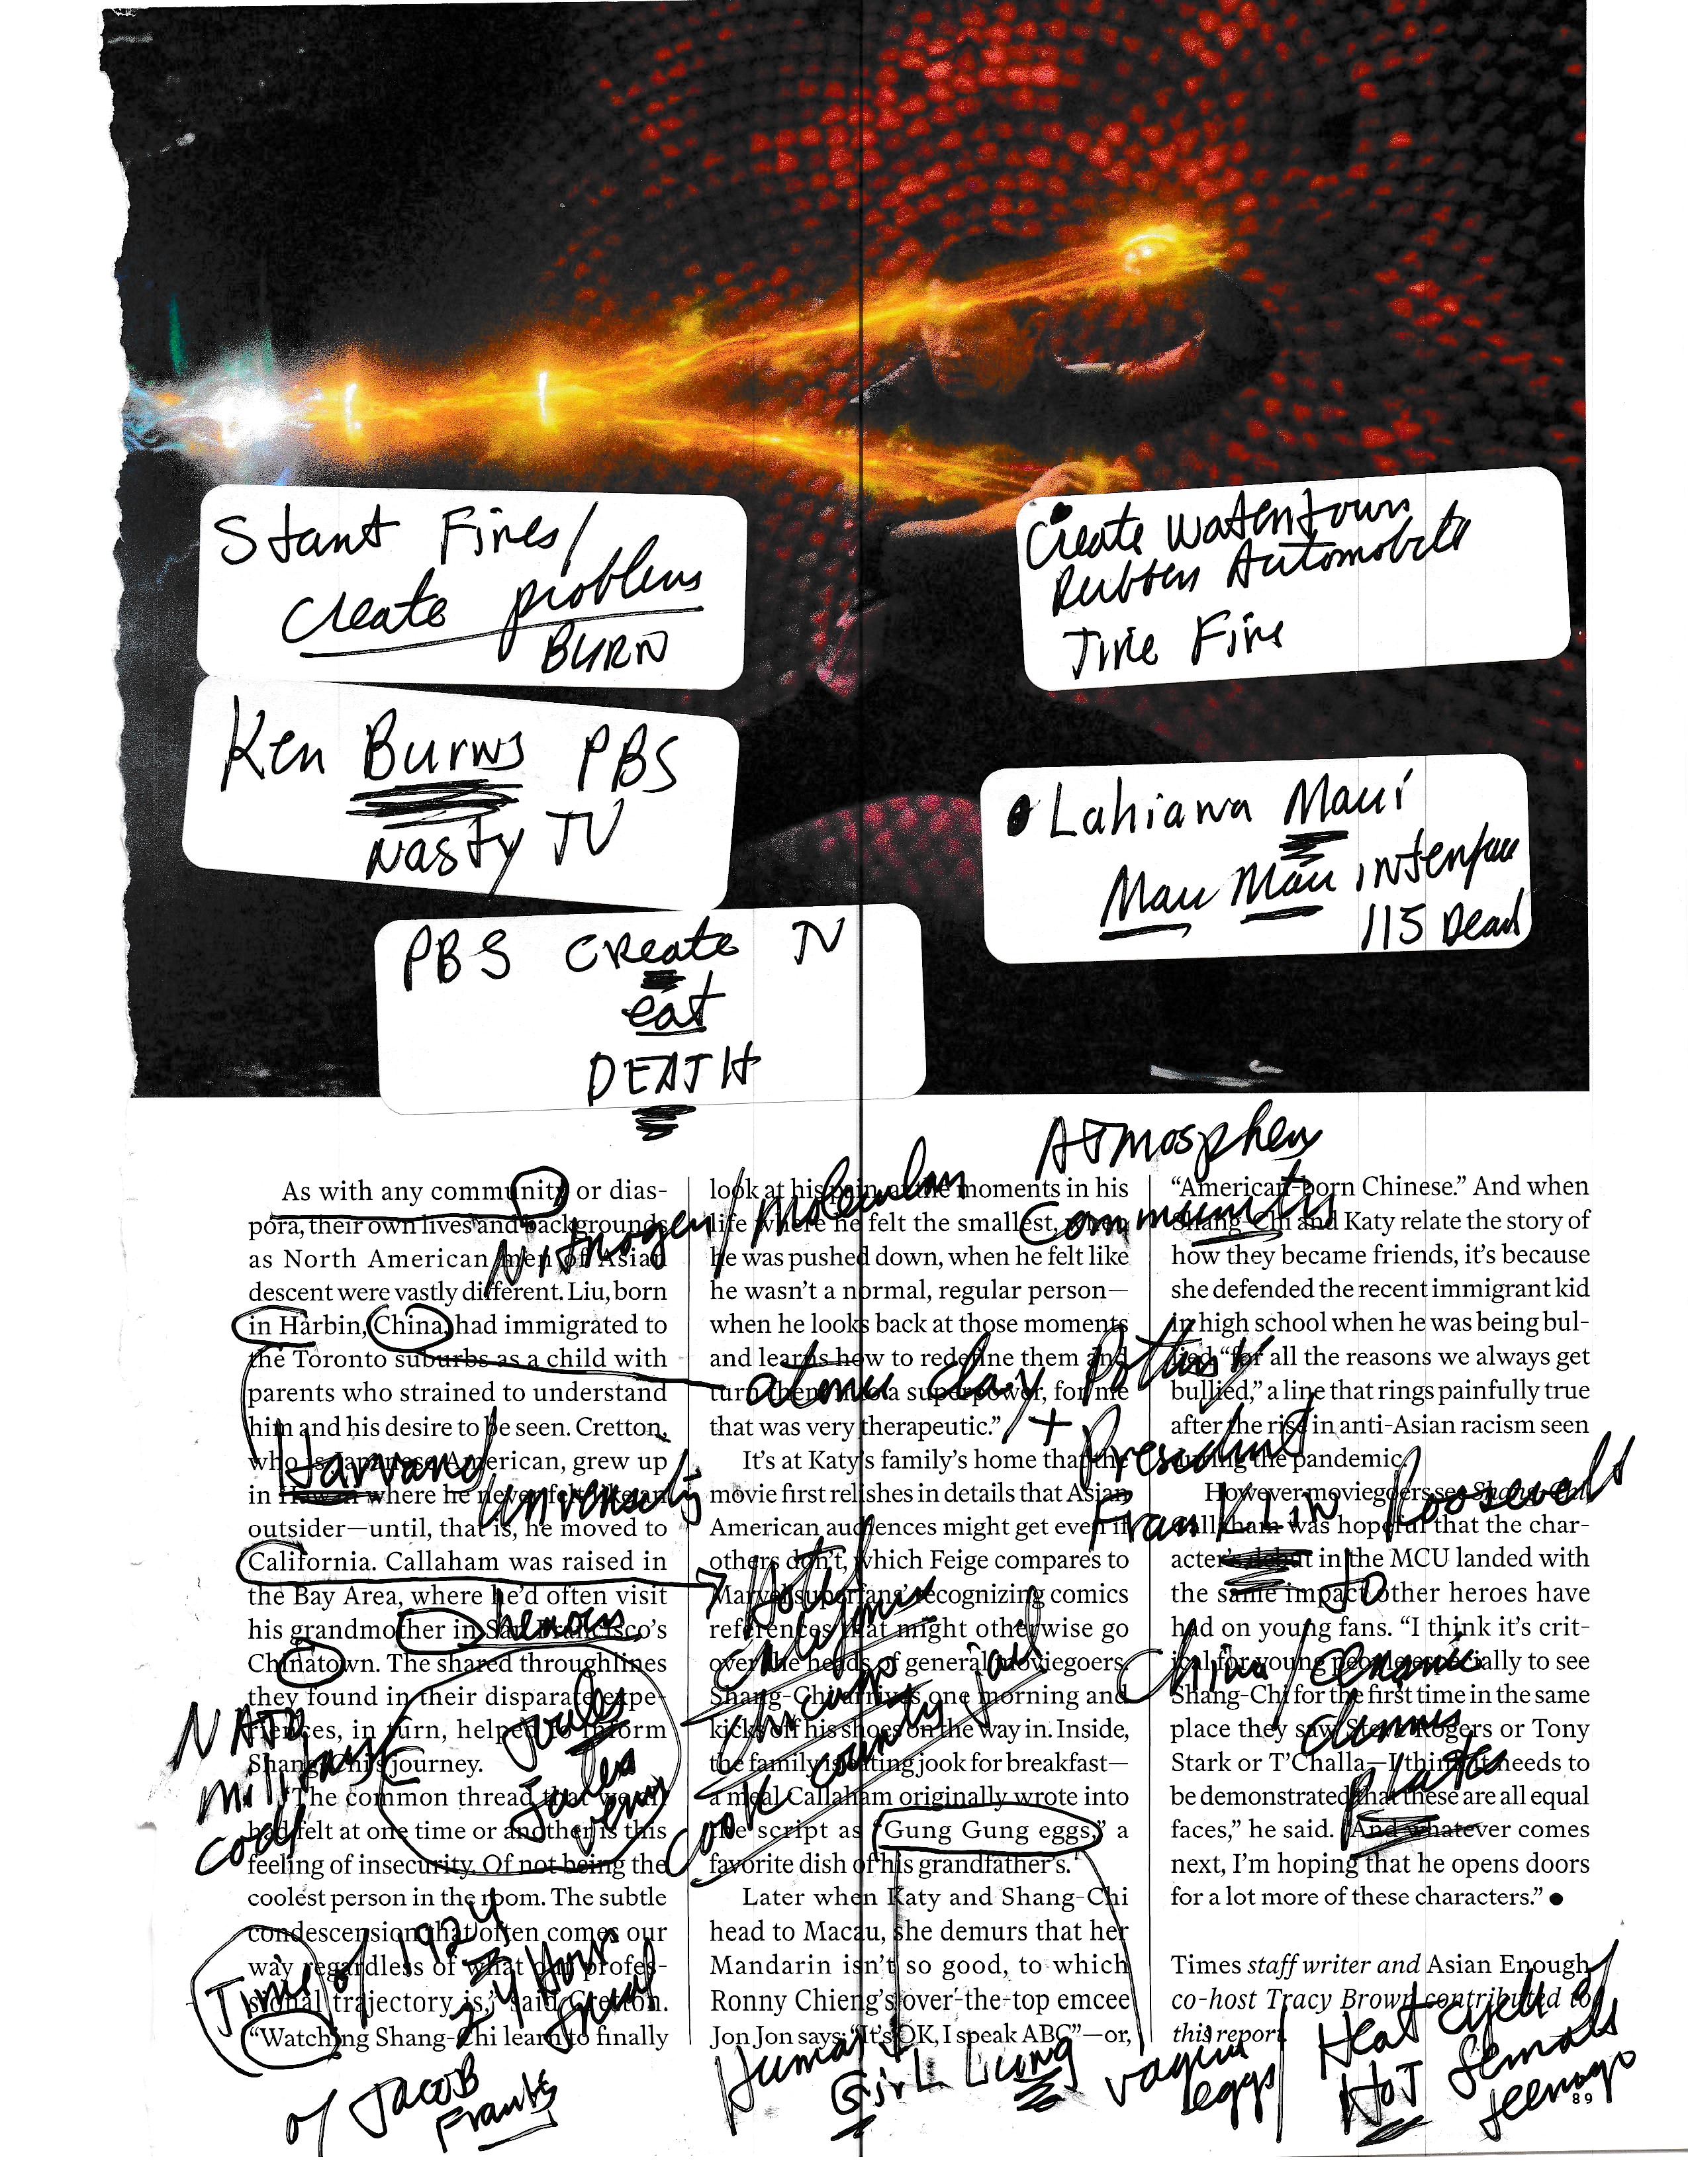 Stant Fires/
Create problems
BURN
Create Watertown
Rubber Automobile
Tire Fire
Ken Burns PBS
Nasty TV
Lahiana Maui
Mau Mau
115 Dead
PBS Create TV
eat
DEATH
Atmosphere
Community
Nitrogen/Molecular
As with any community or dias-
pora, their own lives and backgrounds
as North American men of Asian
descent were vastly different. Liu, born
in Harbin, China, had immigrated to
the Toronto suburbs as a child with
parents who strained to understand
him and his desire to be seen. Cretton,
who is Japanese American, grew up
in Hawaii where he never felt like an
outsider—until, that is, he moved to
California. Callaham was raised in
the Bay Area, where he'd often visit
his grandmother in San Francisco's
Chinatown. The shared throughlines
they found in their disparate expe-
riences, in turn, helped to inform
Shang-Chi's journey.
"The common thread that we all
had felt at one time or another is this
feeling of insecurity. Of not being the
coolest person in the room. The subtle
condescension that often comes our
way regardless of what our profes-
sional trajectory is," said Cretton.
"Watching Shang-Chi learn to finally
Harvard
University
Joules
Jules
Verne
NATO
Military
code
Time of 1924
24 Hour
of Jacob
Franks
look at his pain at the moments in his
life where he felt the smallest, when
he was pushed down, when he felt like
he wasn't a normal, regular person—
when he looks back at those moments
and learns how to redefine them and
turn them into a superpower, for me
that was very therapeutic."
It's at Katy's family's home that the
movie first relishes in details that Asian
American audiences might get even if
others don't, which Feige compares to
Marvel superfans' recognizing comics
references that might otherwise go
over the heads of general moviegoers.
Shang-Chi arrives one morning and
kicks off his shoes on the way in. Inside,
the family is eating jook for breakfast—
a meal Callaham originally wrote into
the script as "Gung Gung eggs," a
favorite dish of his grandfather's.
Later when Katy and Shang-Chi
head to Macau, she demurs that her
Mandarin isn't so good, to which
Ronny Chieng's over-the-top emcee
Jon Jon says: "It's OK, I speak ABC"—or,
clay Pottery
+ President
Franklin Roosevelt
to
China/ceramic
plates
Hotel
California
Chicago
Cook County Jail
Human
Girl Lung
eggs
"American-born Chinese." And when
Shang-Chi and Katy relate the story of
how they became friends, it's because
she defended the recent immigrant kid
in high school when he was being bul-
lied "for all the reasons we always get
bullied," a line that rings painfully true
after the rise in anti-Asian racism seen
during the pandemic.
However moviegoers see Shang-Chi,
Callaham was hopeful that the char-
acter's debut in the MCU landed with
the same impact other heroes have
had on young fans. "I think it's crit-
ical for young people especially to see
Shang-Chi for the first time in the same
place they saw Steve Rogers or Tony
Stark or T'Challa—I think it needs to
be demonstrated that these are all equal
faces," he said. "And whatever comes
next, I'm hoping that he opens doors
for a lot more of these characters." ●
Times staff writer and Asian Enough
co-host Tracy Brown contributed to
this report.
Heat cycle of
Hot female
teenage
89